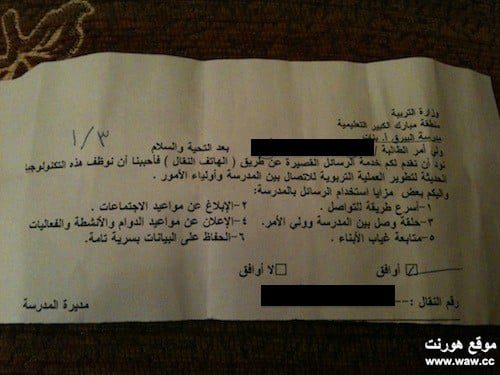 وزارة التربية
منطقة مبارك الكبير التعليمية
مدرسة البيرق أ. بنات
١/٣
ولي أمر الطالبة / بعد التحية والسلام
نود أن نقدم لكم خدمة الرسائل القصيرة عن طريق ( الهاتف النقال ) فأحببنا أن نوظف هذه التكنولوجيا
الحديثة لتطوير العملية التربوية للاتصال بين المدرسة وأولياء الأمور .
واليكم بعض مزايا استخدام الرسائل بالمدرسة:
١-أسرع طريقة للتواصل . ٢-الإبلاغ عن مواعيد الاجتماعات .
٣- حلقة وصل بين المدرسة وولي الأمر. ٤-الإعلان عن مواعيد الدوام والأنشطة والفعاليات
٥-متابعة غياب الأبناء . ٦-الحفاظ على البيانات بسرية تامة.
أوافق لا أوافق
رقم النقال :--
مديرة المدرسة
موقع هورنت
www.waw.cc